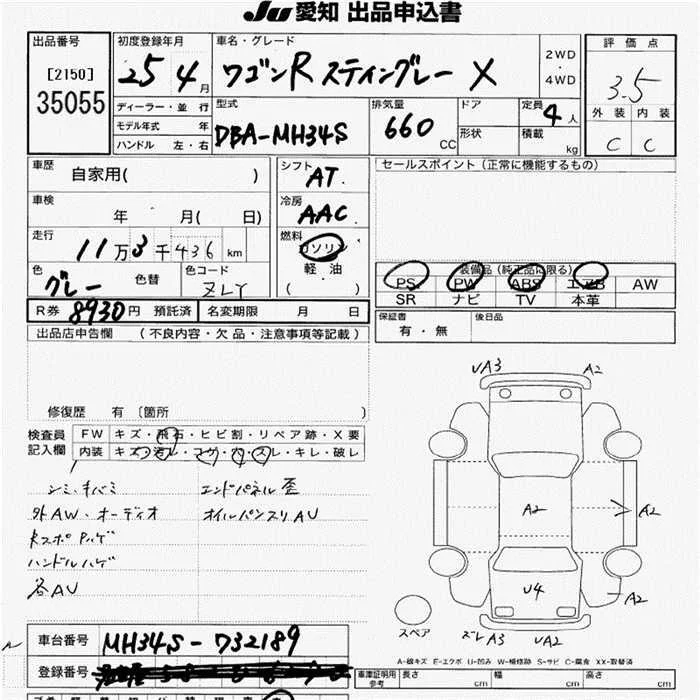 Ju 愛知 出品申込書
出品番号
[2150]
35055
初度登録年月
25 4 月
車名・グレード
ワゴンR スティングレー X
2WD
・
4WD
評価点
3.5
外装 内装
C C
ディーラー・並 行
モデル年式 年
ハンドル 左・右
型式
DBA-MH34S
排気量
660 CC
ドア
形状
定員
4 人
積載
kg
車歴
自家用( )
車検
年 月( 日)
走行
11万3千436 km
色
グレー 色替
色コード
ZLY
シフト
AT.
冷房
AAC.
燃料
ガソリン
軽・油
( )
セールスポイント(正常に機能するもの)
装備品(純正品に限る)
PS PW ABS エアB AW
SR ナビ TV 本革
R券 8930円 預託済
名変期限 月 日
保証書
有・無
後日品
出品店申告欄 (不良内容・欠品・注意事項等記載)
修復歴 有 〔箇所 〕
検査員
記入欄
FW キズ・飛石・ヒビ割・リペア跡・X要
内装 キズ・汚レ・コゲ・穴・スレ・キレ・破レ
シミ・キバミ
外AW・オーディオ
ハンドルハゲ
各AU
エンドパネル歪
オイルパンスリAU
UA3 A2
A2
A2
A2
U4
スペア
ズレA3 UA2
A-線キズ E-エクボ U-凹み W-補修跡 S-サビ C-腐食 XX-取替済
車台番号 MH34S-732189
登録番号
車庫証明用
参考
長さ cm 幅 cm 高さ cm